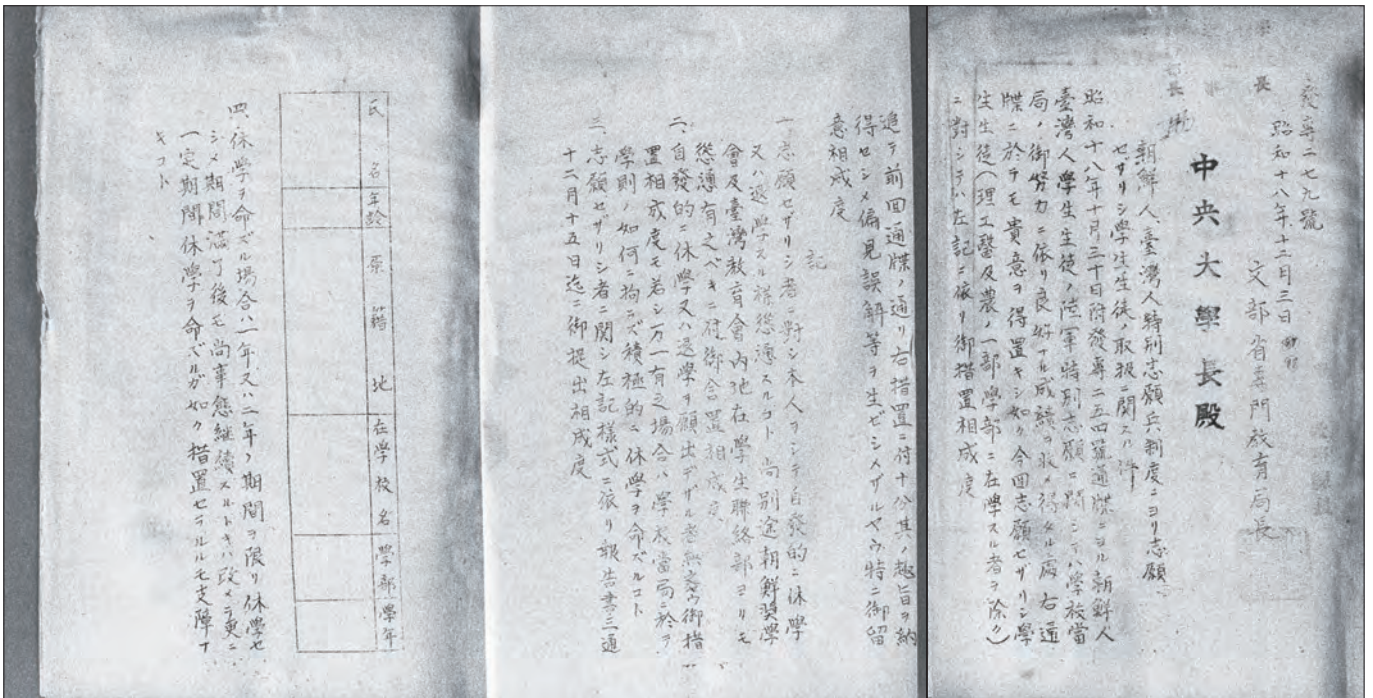 發專二七九號
昭和十八年十二月三日
文部省專門教育局長
中央大學長殿
朝鮮人、臺灣人特別志願兵制度ニヨリ志願
セザリシ學生生徒ノ取扱ニ関スル件
昭和十八年十月三十日附發專二五四號通牒ニヨル朝鮮人
臺灣人學生生徒ノ陸軍特別志願ニ関シテハ學校當
局ノ御努力ニ依リ良好ナル成績ヲ收メ得タル處右通
牒ニ於テモ貴意ヲ得置キシ如ク今回志願セザリシ學
生生徒(理工醫及農ノ一部學部ニ在學スル者ヲ除ク)
ニ對シテハ左記ニ依リ御措置相成度
追テ前回通牒ノ通リ右措置ニ付十分其ノ趣旨ヲ納
得セシメ偏見誤解等ヲ生ゼシメザルヤウ特ニ御留
意相成度
記
一、志願セザリシ者ニ對シ本人ヲシテ自發的ニ休學
又ハ退學スル様慫慂スルコト尚別途朝鮮奬學
會及臺灣教育會内地在學生聯絡部ヨリモ
慫慂有之ベキニ付御含置相成度
二、自發的ニ休學又ハ退學ヲ願出デザル者無之樣御措
置相成度モ若シ万一有之場合ハ學校當局ニ於テ
學則ノ如何ニ拘ラズ積極的ニ休學ヲ命ズルコト
三、志願セザリシ者ニ関シ左記様式ニ依リ報告書三通
十二月十五日迄ニ御提出相成度
氏名
年齡
原籍地
在學校名
學部
學年
四、休學ヲ命ズル場合ハ一年又ハ二年ノ期間ヲ限リ休學セ
シメ期間滿了後モ尚事態継續スルトキハ改メテ更ニ
一定期間休學ヲ命ズルガ如ク措置セラルルモ支障ナ
キコト